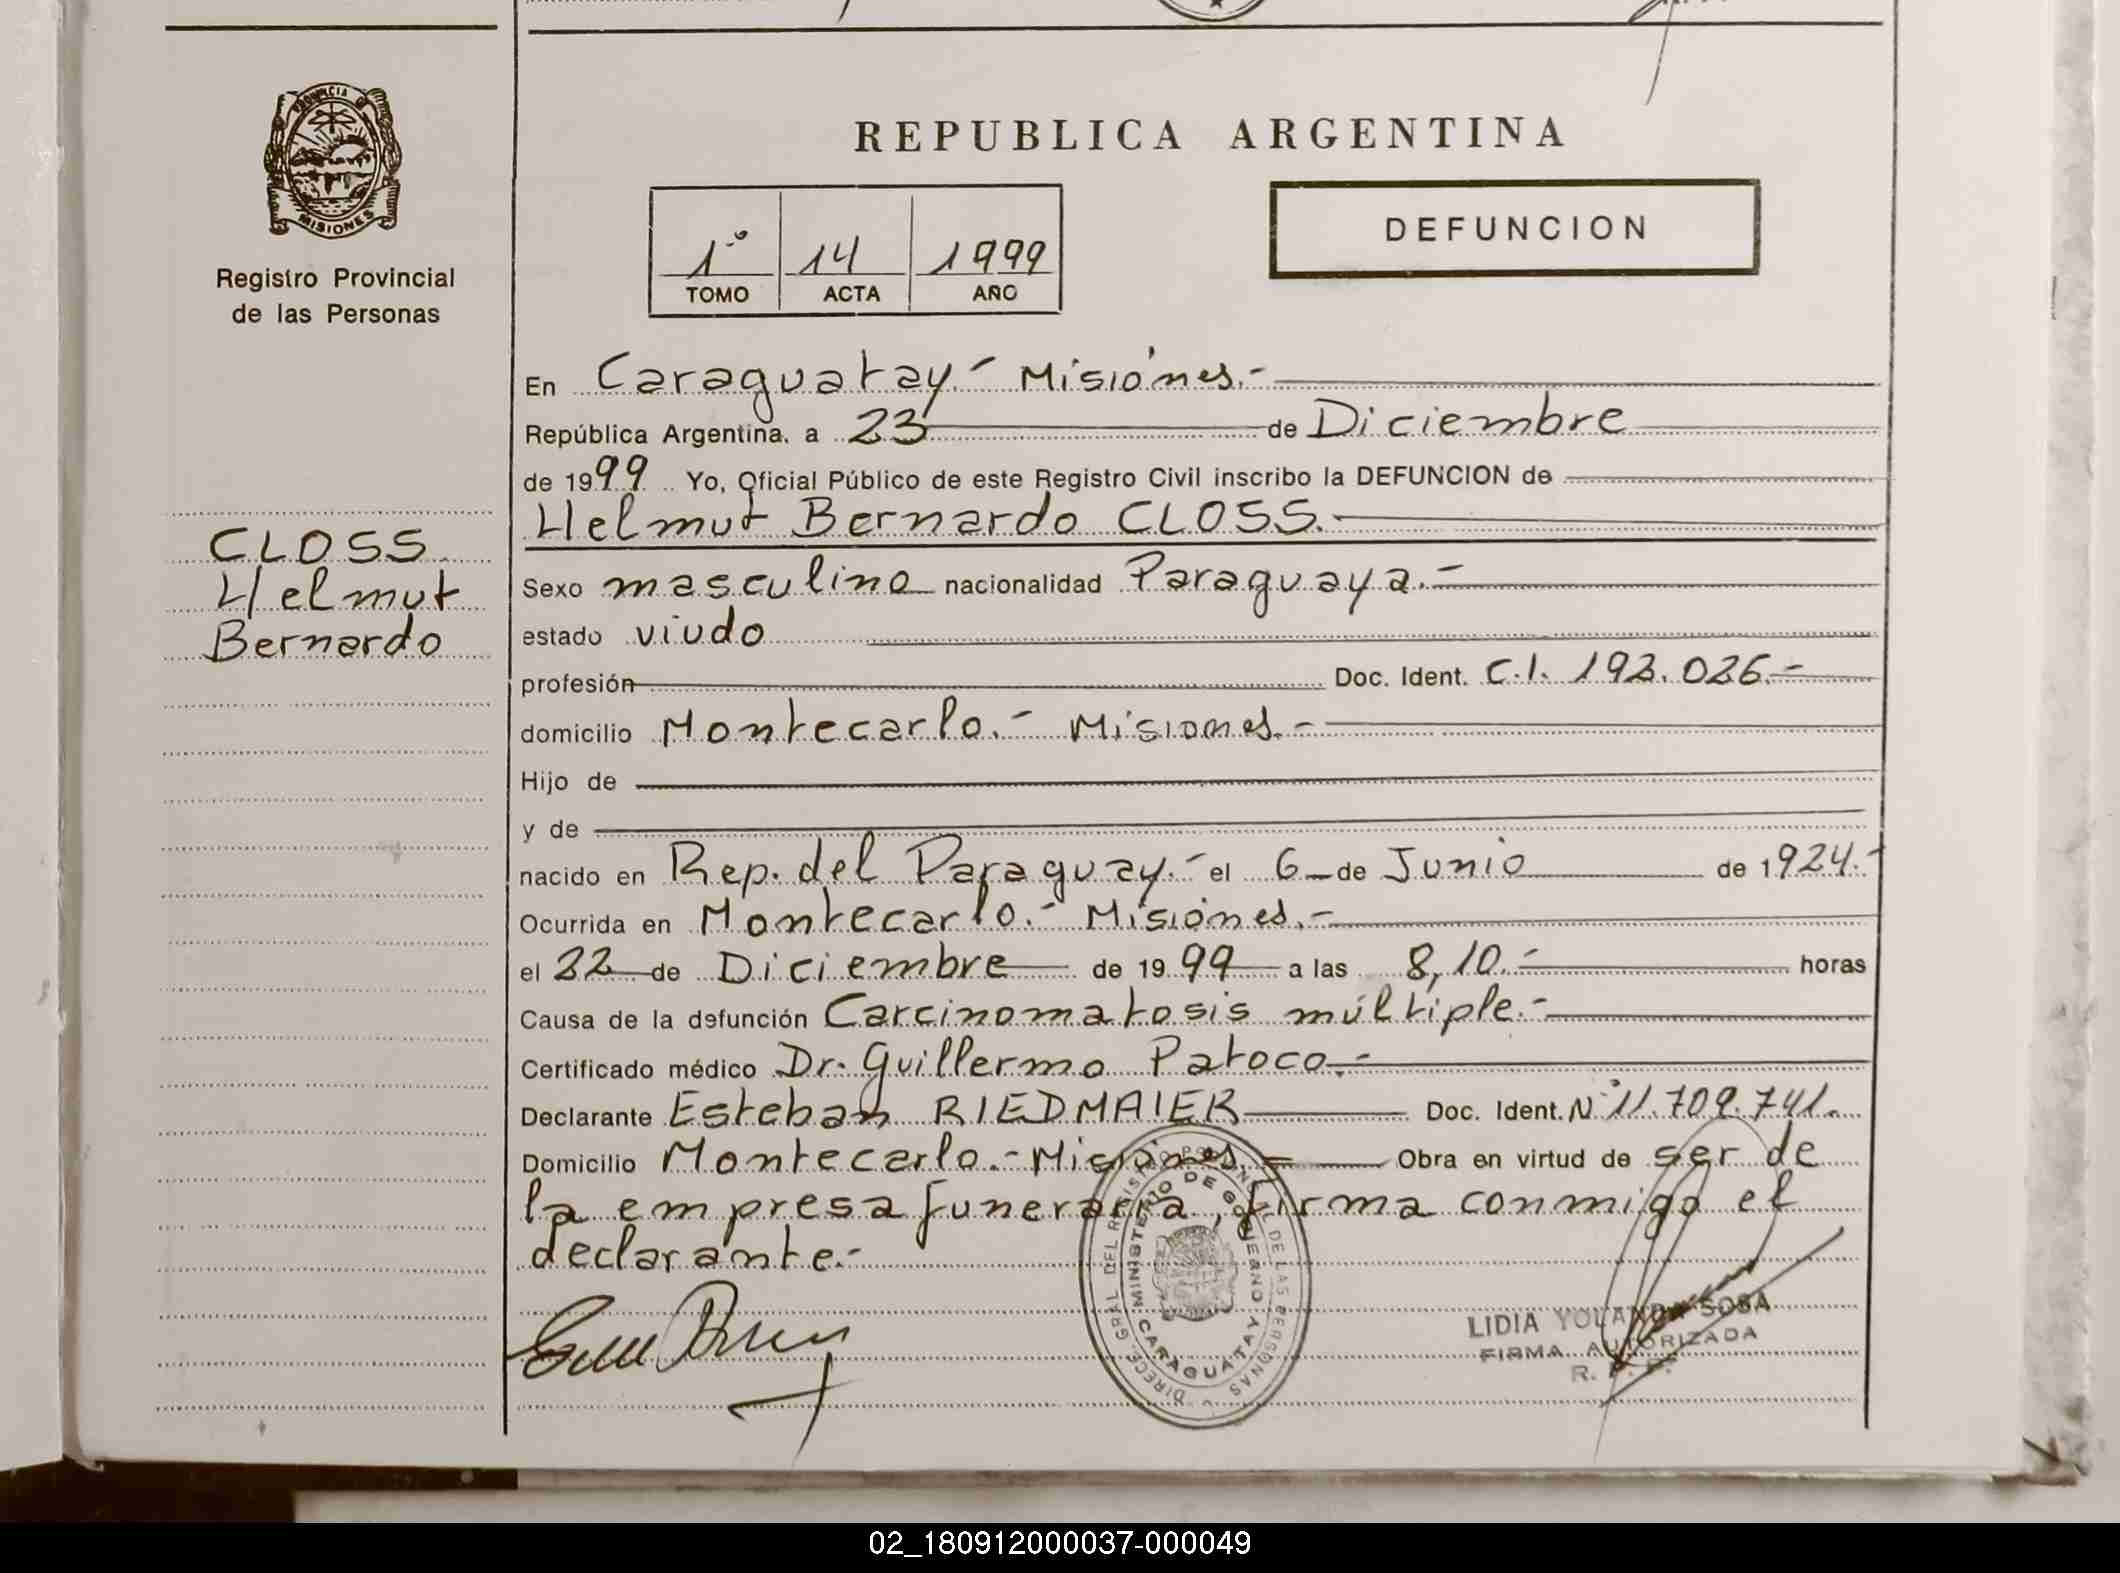 PROVINCIA DE
MISIONES
Registro Provincial
de las Personas
CLOSS
Helmut
Bernardo
REPUBLICA ARGENTINA
1º 14 1999
TOMO ACTA AÑO
DEFUNCION
En Caraguatay.- Misiones.-
República Argentina, a 23 de Diciembre
de 1999 Yo, Oficial Público de este Registro Civil inscribo la DEFUNCION de
Helmut Bernardo CLOSS.-
Sexo masculino nacionalidad Paraguaya.-
estado viudo
profesión Doc. Ident. C.I. 192.026.-
domicilio Montecarlo.- Misiones.-
Hijo de
y de
nacido en Rep. del Paraguay.- el 6 de Junio de 1924.-
Ocurrida en Montecarlo.- Misiones.-
el 22 de Diciembre de 1999 a las 8,10.- horas
Causa de la defunción Carcinomatosis múltiple.-
Certificado médico Dr. Guillermo Patoco.-
Declarante Esteban RIEDMAIER Doc. Ident. Nº 11.709.741.
Domicilio Montecarlo.- Misiones.- Obra en virtud de ser de
la empresa funeraria, firma conmigo el
declarante.-
DIREC. GRAL. DEL REGISTRO PROVINCIAL DE LAS PERSONAS
MINISTERIO DE GOBIERNO
CARAGUATAY
LIDIA YOLANDA SOSA
FIRMA AUTORIZADA
02_180912000037-000049